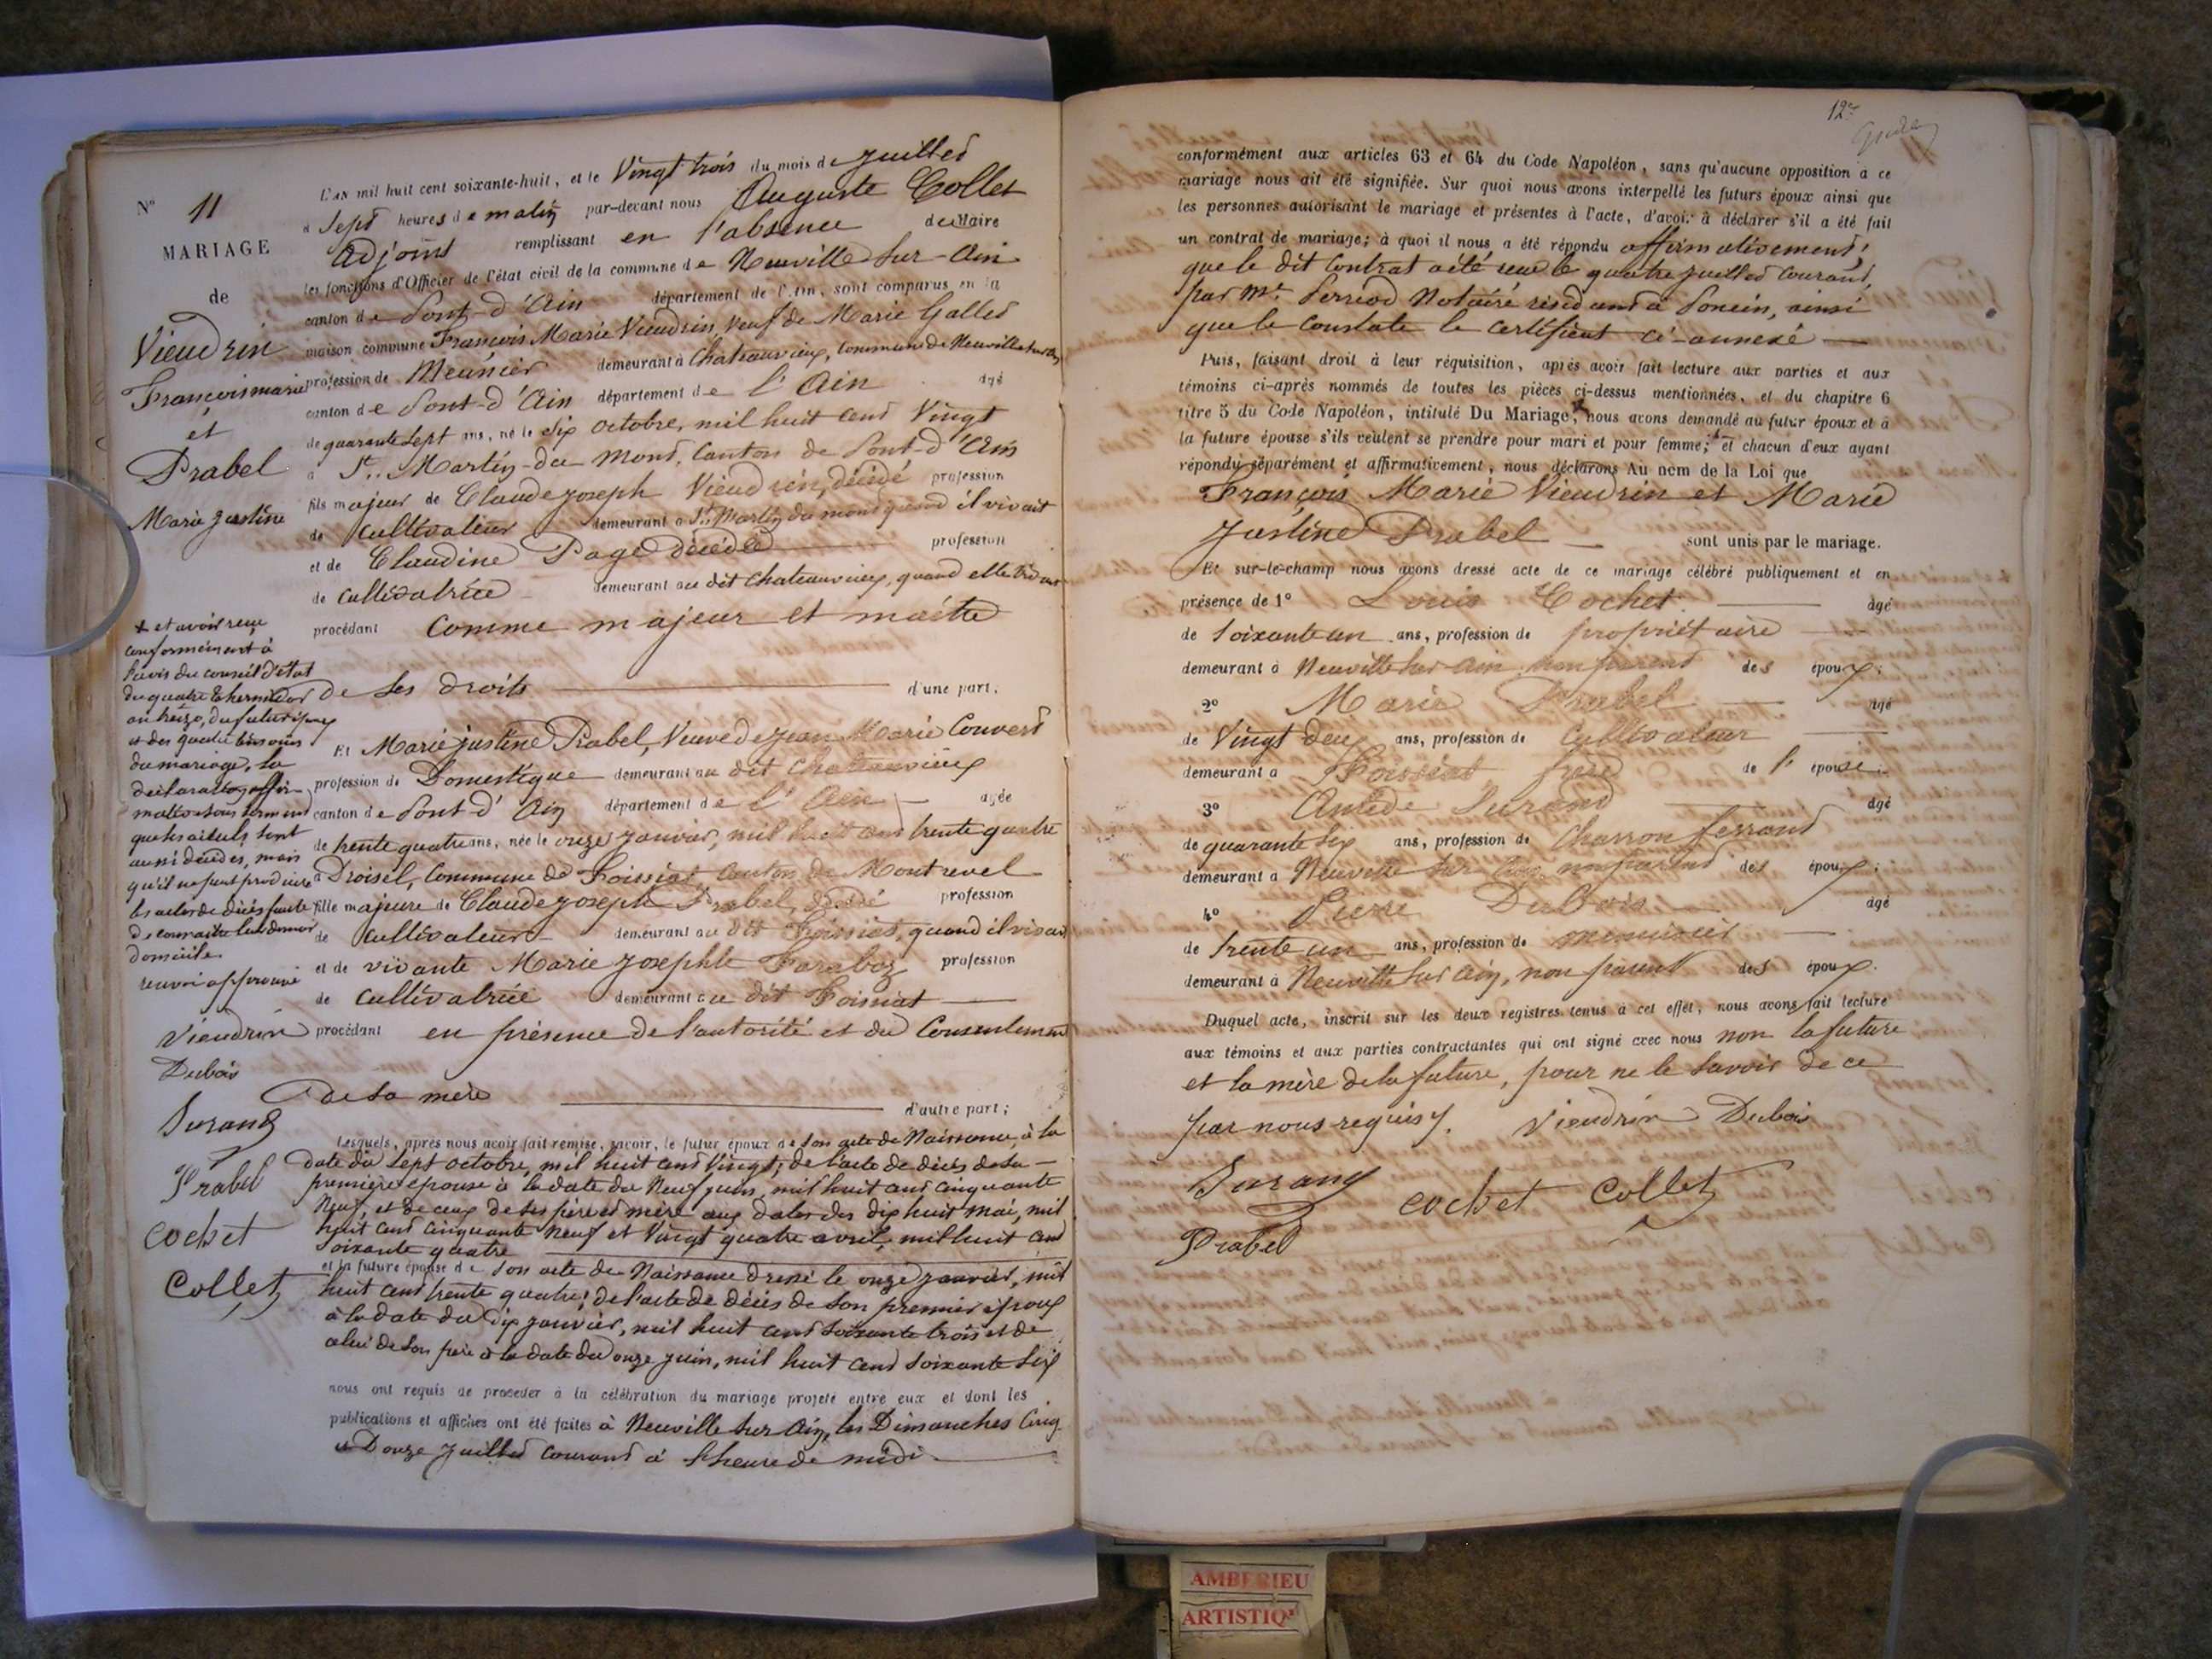 N° 11
MARIAGE
de
Vieudrin
François marie
et
Prabel
Marie Justine
L'an mil huit cent soixante-huit, et le Vingt trois du mois de juillet
à Sept heures de matin par-devant nous Auguste Collet
adjoint remplissant en l'absence du Maire
les fonctions d'Officier de l'état civil de la commune de Neuville sur-Ain
canton de Pont-d'Ain département de l'Ain, sont comparus en la
maison commune François Marie Vieudrin, Veuf de Marie Gallet
profession de Meunier demeurant à Chateauvieux, commune de Neuville sur Ain
canton de Pont-d'Ain département de l'Ain âgé
de quarante sept ans, né le Six octobre, mil huit cent Vingt
à St. Martin-du-Mont, Canton de Pont-d'Ain
fils majeur de Claude joseph Vieudrin, décédé profession
de Cultivateur demeurant à St. Martin du mont quand il vivait
et de Claudine Page décédée profession
de Cultivatrice demeurant au dit Chateauvieux, quand elle vivait
procédant comme majeur et maître
de ses droits d'une part;
Et Marie justine Prabel, Veuve de jean Marie Convert
profession de Domestique demeurant au dit Chateauvieux
canton de Pont-d'Ain département de l'Ain âgée
de trente quatre ans, née le onze janvier, mil huit cent trente quatre
à Droisel, Commune de Foissiat, canton de Montrevel
fille majeure de Claude joseph Prabel, décédé profession
de Cultivateur demeurant au dit Foissiat, quand il vivait
et de vivante Marie josephte Faraboz profession
de Cultivatrice demeurant au dit Foissiat
procédant en présence de l'autorité et du Consentement
de sa mère d'autre part;
Lesquels, après nous avoir fait remise, savoir, le futur époux de son acte de Naissance, à la
date du Sept octobre, mil huit cent Vingt; de l'acte de décès de sa
première épouse à la date du Neuf juin, mil huit cent cinquante
Neuf, et de ceux de ses père et mère aux dates des dix huit mai, mil
huit cent cinquante neuf et Vingt quatre avril, mil huit cent
soixante quatre
et la future épouse de son acte de Naissance dressé le onze janvier, mil
huit cent trente quatre; de l'acte de décès de son premier époux
à la date du dix janvier, mil huit cent soixante trois et de
celui de son père à la date du onze juin, mil huit cent soixante six
nous ont requis de procéder à la célébration du mariage projeté entre eux et dont les
publications et affiches ont été faites à Neuville sur Ain, les Dimanches Cinq
et Douze juillet courant à l'heure de midi.
+ et avoir reçu
conformément à
l'avis du conseil d'état
du quatre thermidor
an treize, du futur époux
et des quatre témoins
du mariage, la
déclaration affir-
mative sous serment
que les aïeuls sont
aussi décédés, mais
qu'il ne peut produire
les actes de décès faute
de connaître leur dernier
domicile
renvoi approuvé
Vieudrin
Dubois
Surand
Prabel
Cochet
Collet
12e
conformément aux articles 63 et 64 du Code Napoléon, sans qu'aucune opposition à ce
mariage nous ait été signifiée. Sur quoi nous avons interpellé les futurs époux ainsi que
les personnes autorisant le mariage et présentes à l'acte, d'avoir à déclarer s'il a été fait
un contrat de mariage; à quoi il nous a été répondu affirmativement,
que le dit Contrat a été reçu le quatre juillet courant,
par Me. Perreod Notaire résidant à Poncin, ainsi
que le constate le certificat ci-annexé
Puis, faisant droit à leur réquisition, après avoir fait lecture aux parties et aux
témoins ci-après nommés de toutes les pièces ci-dessus mentionnées, et du chapitre 6
titre 5 du Code Napoléon, intitulé Du Mariage, nous avons demandé au futur époux et à
la future épouse s'ils veulent se prendre pour mari et pour femme; et chacun d'eux ayant
répondu séparément et affirmativement, nous déclarons Au nom de la Loi que
François Marie Vieudrin et Marie
Justine Prabel sont unis par le mariage.
Et sur-le-champ nous avons dressé acte de ce mariage célébré publiquement et en
présence de 1° Louis Cochet âgé
de soixante un ans, profession de propriétaire
demeurant à Neuville sur Ain non parent des époux;
2° Marie Prabel âgé
de Vingt deux ans, profession de Cultivateur
demeurant à Foissiat frère de l'épouse;
3° Amede Surand âgé
de quarante six ans, profession de Charron ferrand
demeurant à Neuville sur Ain, non parent des époux;
4° Pierre Dubois âgé
de trente un ans, profession de menuisier
demeurant à Neuville sur Ain, non parent des époux.
Duquel acte, inscrit sur les deux registres tenus à cet effet, nous avons fait lecture
aux témoins et aux parties contractantes qui ont signé avec nous non la future
et la mère de la future, pour ne le savoir de ce
par nous requis.
Vieudrin Dubois
Surand Cochet Collet
Prabel
AMBERIEU
ARTISTIQ